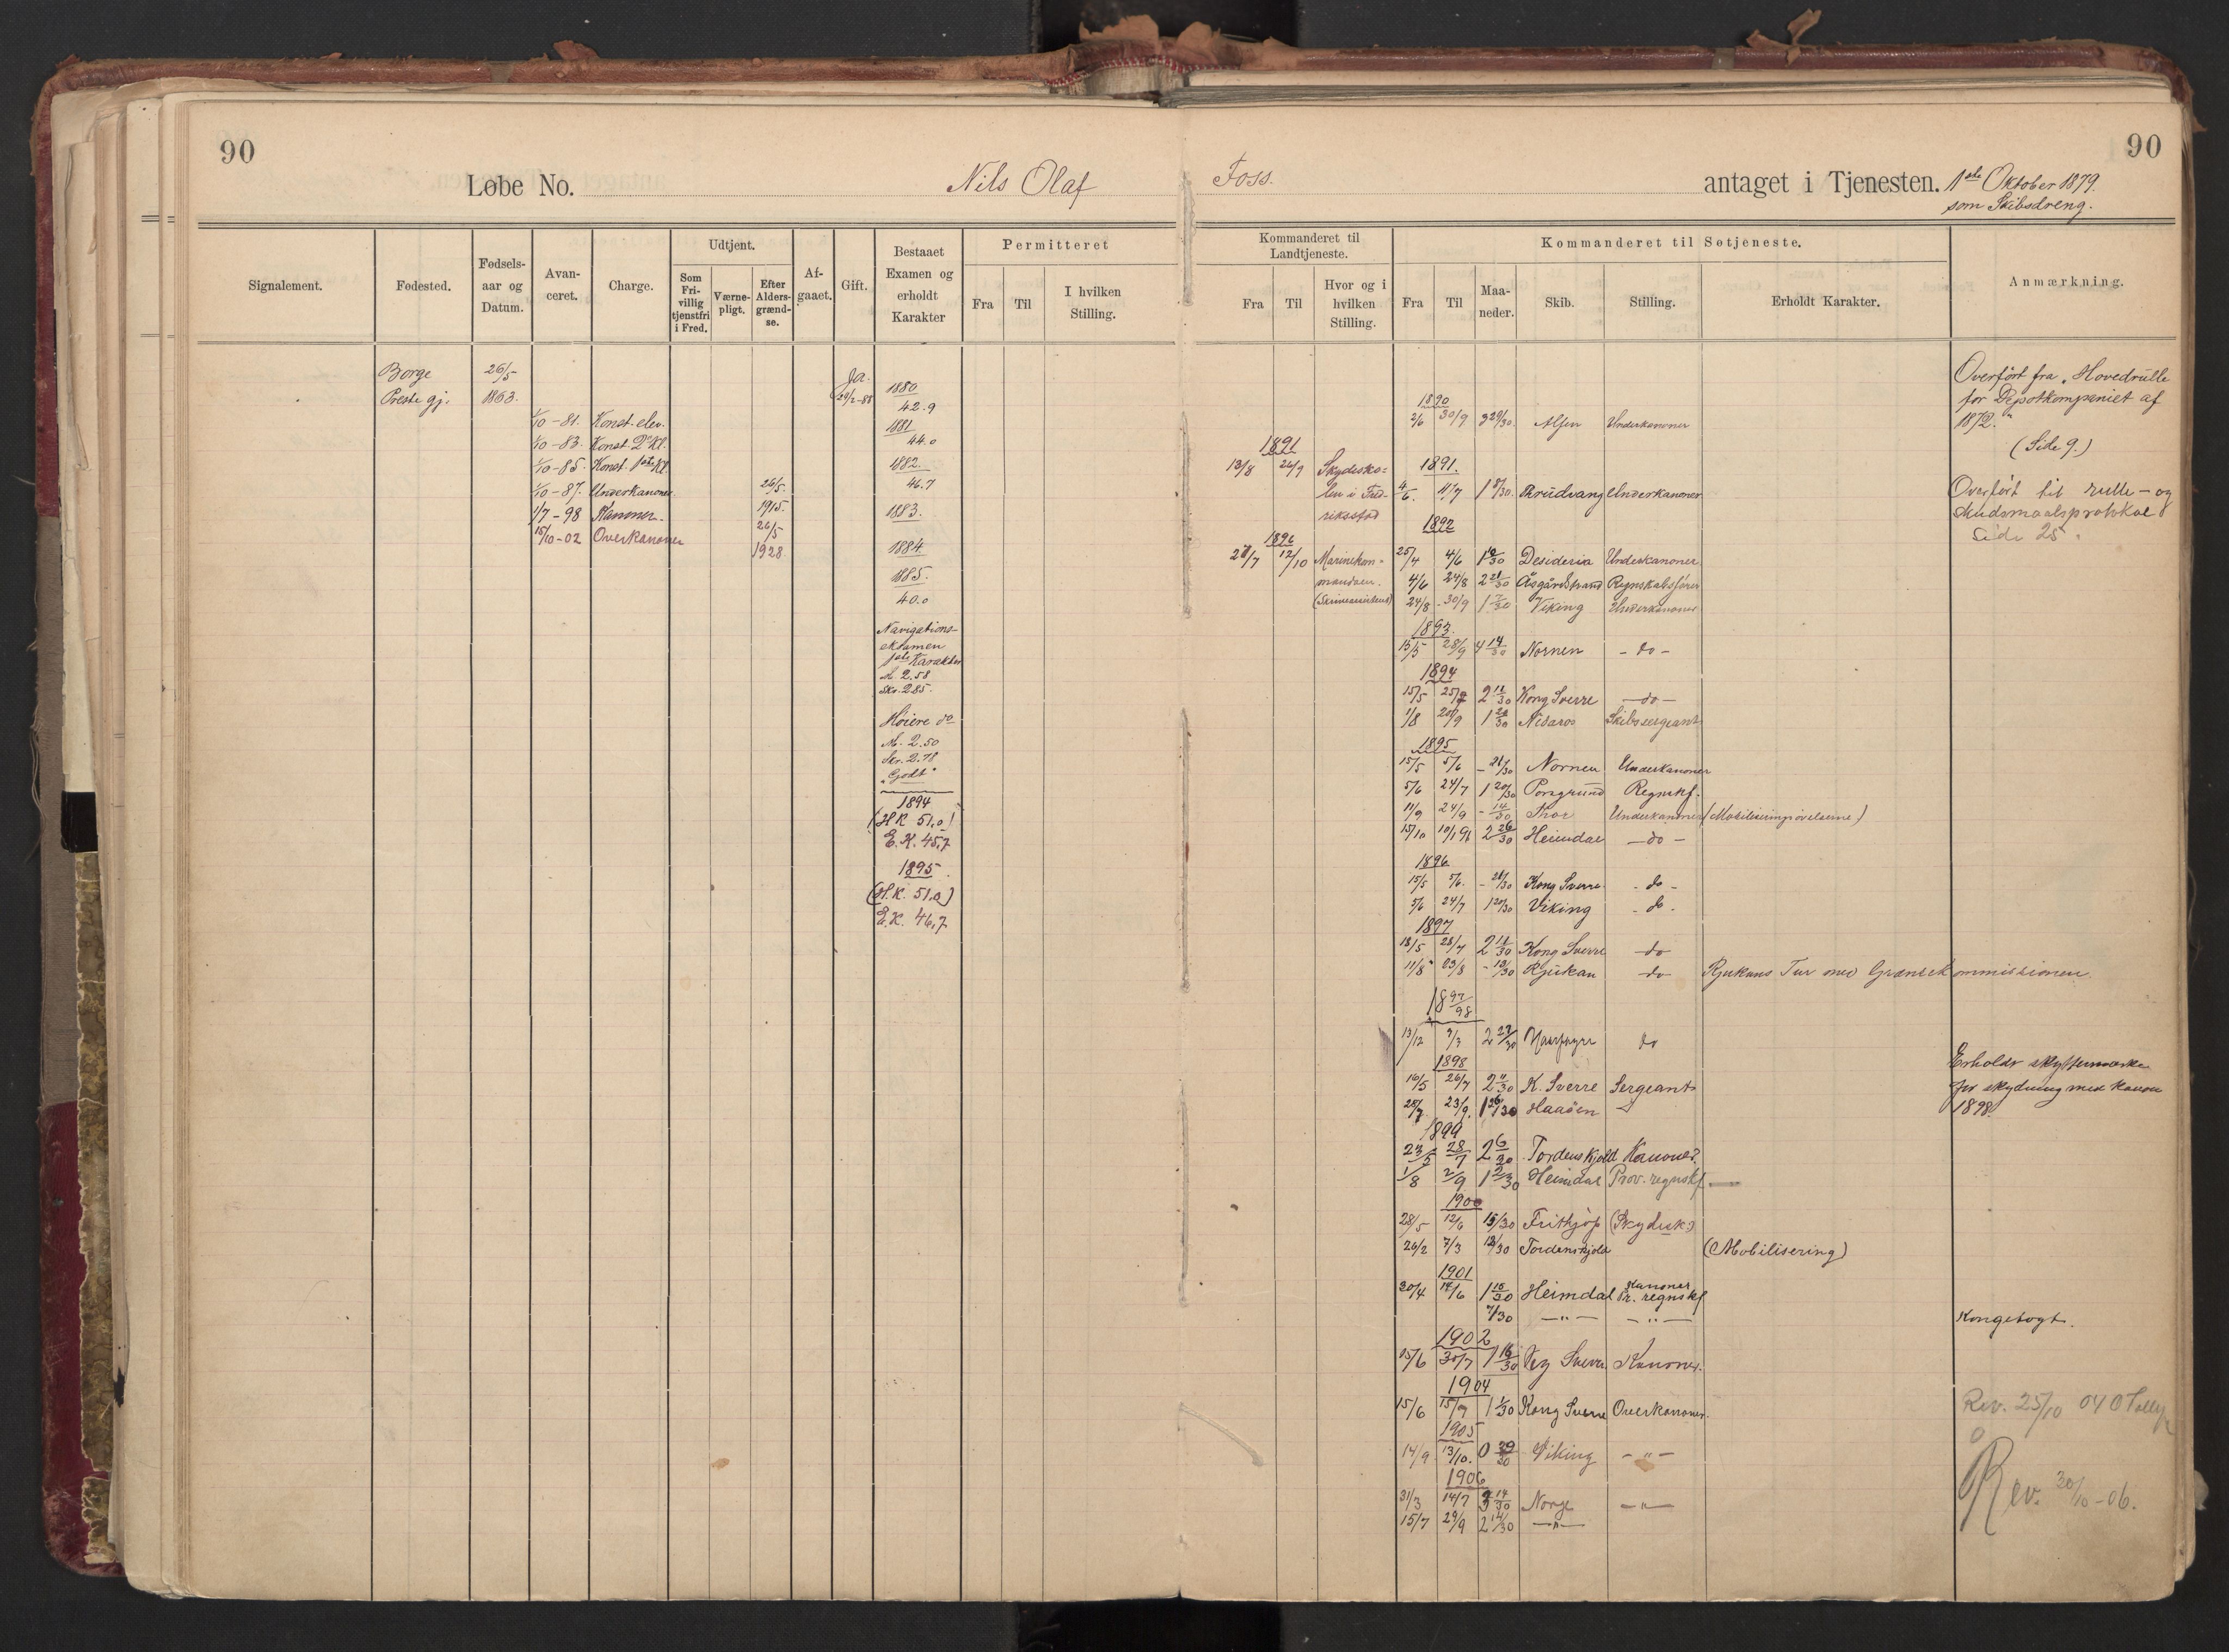 90
90
Løbe No. Nils Olaf Foss. antaget i Tjenesten. 1ste Oktober 1879.
som Skibsdreng.
Signalement.
Fødested.
Fødsels-
aar og
Datum.
Avan-
ceret.
Charge.
Udtjent.
Som
Fri-
villig
tjenstfri
i Fred.
Værne-
pligt.
Efter
Alders-
grænd-
se.
Af-
gaaet.
Gift.
Bestaaet
Examen og
erholdt
Karakter
Permitteret
Fra
Til
I hvilken
Stilling.
Borge
Preste gj.
26/5
1863.
1/10-81. Konst. elev.
1/10-83. Konst. 2 Kl.
1/10-85. Konst. 1ste Kl.
1/10-87. Underkanoner.
1/7-98 Kanoner.
15/10-02 Overkanoner
26/5.
1915.
26/5
1928
Ja.
1880.
42.9
1881
44.0
1882.
46.7
1883.
1884.
1885.
40.0
Navigations-
eksamen
1ste Karakter
M. 2.58
Skr. 2.85.
Høiere do
M. 2.50
Skr. 2.78
"Godt"
1894
(H.K. 51,0)
E.K. 45,7
1895
(H.K. 51,0)
E.K. 46,7
Kommanderet til
Landtjeneste.
Fra
Til
Hvor og i
hvilken
Stilling.
1891
13/8 26/9 Skydesko-
len i Fred-
riksstad
1896
27/7 12/10 Marinekom-
mandoen.
Kommanderet til Søtjeneste.
Fra
Til
Maa-
neder.
Skib.
Stilling.
Erholdt Karakter.
1890
2/6 30/9 3 29/30. Alfen Underkanoner
1891.
4/6. 11/7 1 8/30. Thrudvang Underkanoner
1892
25/4 4/6 1 10/30 Desideria Underkanoner
4/6 24/8 2 21/30 Åsgårdstrand Regnskabsfører
24/8 - 30/9 1 7/30 Viking Underkanoner
1893.
15/5 28/9 4 14/30 Nornen - do -
1894
15/5 25/7 2 11/30 Kong Sverre - do -
1/8 20/9 1 20/30 Nidaros Skibssergeant
1895
15/5 5/6 - 21/30 Nornen Underkanoner
5/6 24/7 1 20/30 Porsgrund Regnskf.
11/9 24/9 - 14/30 Thor Underkanoner (Mobiliseringsøvelserne)
15/10 10/1 96 2 26/30 Heimdal - do -
1896
15/5 5/6. - 21/30 Kong Sverre - do -
5/6 24/7 1 20/30 Viking - do -
1897
18/5 28/7 2 11/30 Kong Sverre do
11/8 23/8 - 13/30 Rjukan do Rjukans Tur med Grænsekommissionen.
1897/98
13/12 9/3 2 27/30 Haarfagre do
1898
16/5 26/7 2 11/30 K. Sverre Sergeant
28/7 23/9. 1 26/30 Haaöen
1899
23/5 28/7 2 6/30 Tordenskjold Kanoner
1/8 2/9 1 2/30 Heimdal Prov. regnskf.
1900
28/5 12/6 15/30 Frithjof (Skydesk.)
26/2 7/3 12/30 Tordenskjold (Mobilisering)
1901
30/4 14/6 1 15/30 Heimdal Kanoner
Pr. regnskf
7/30 - " - - " -
1902
15/6 30/7 1 16/30 Kg Sverre Kanoner.
1904
15/6 15/7 1 1/30 Kong Sverre Overkanoner.
1905
14/9 13/10. 0 29/30 Viking - " -
1906
31/3 14/7 3 14/30 Norge - " -
15/7 29/9 2 14/30 - " -
Anmærkning.
Overført fra "Hovedrulle
for Depotkompaniet af
1872."
(Side 9.)
Overført til rulle- og
skudsmaalsprotokol
Side 25.
Erholdt skyttermærke
for skydning med kanon
1898.
Kongetogt.
Rev. 25/10 04
Rev. 30/10-06.